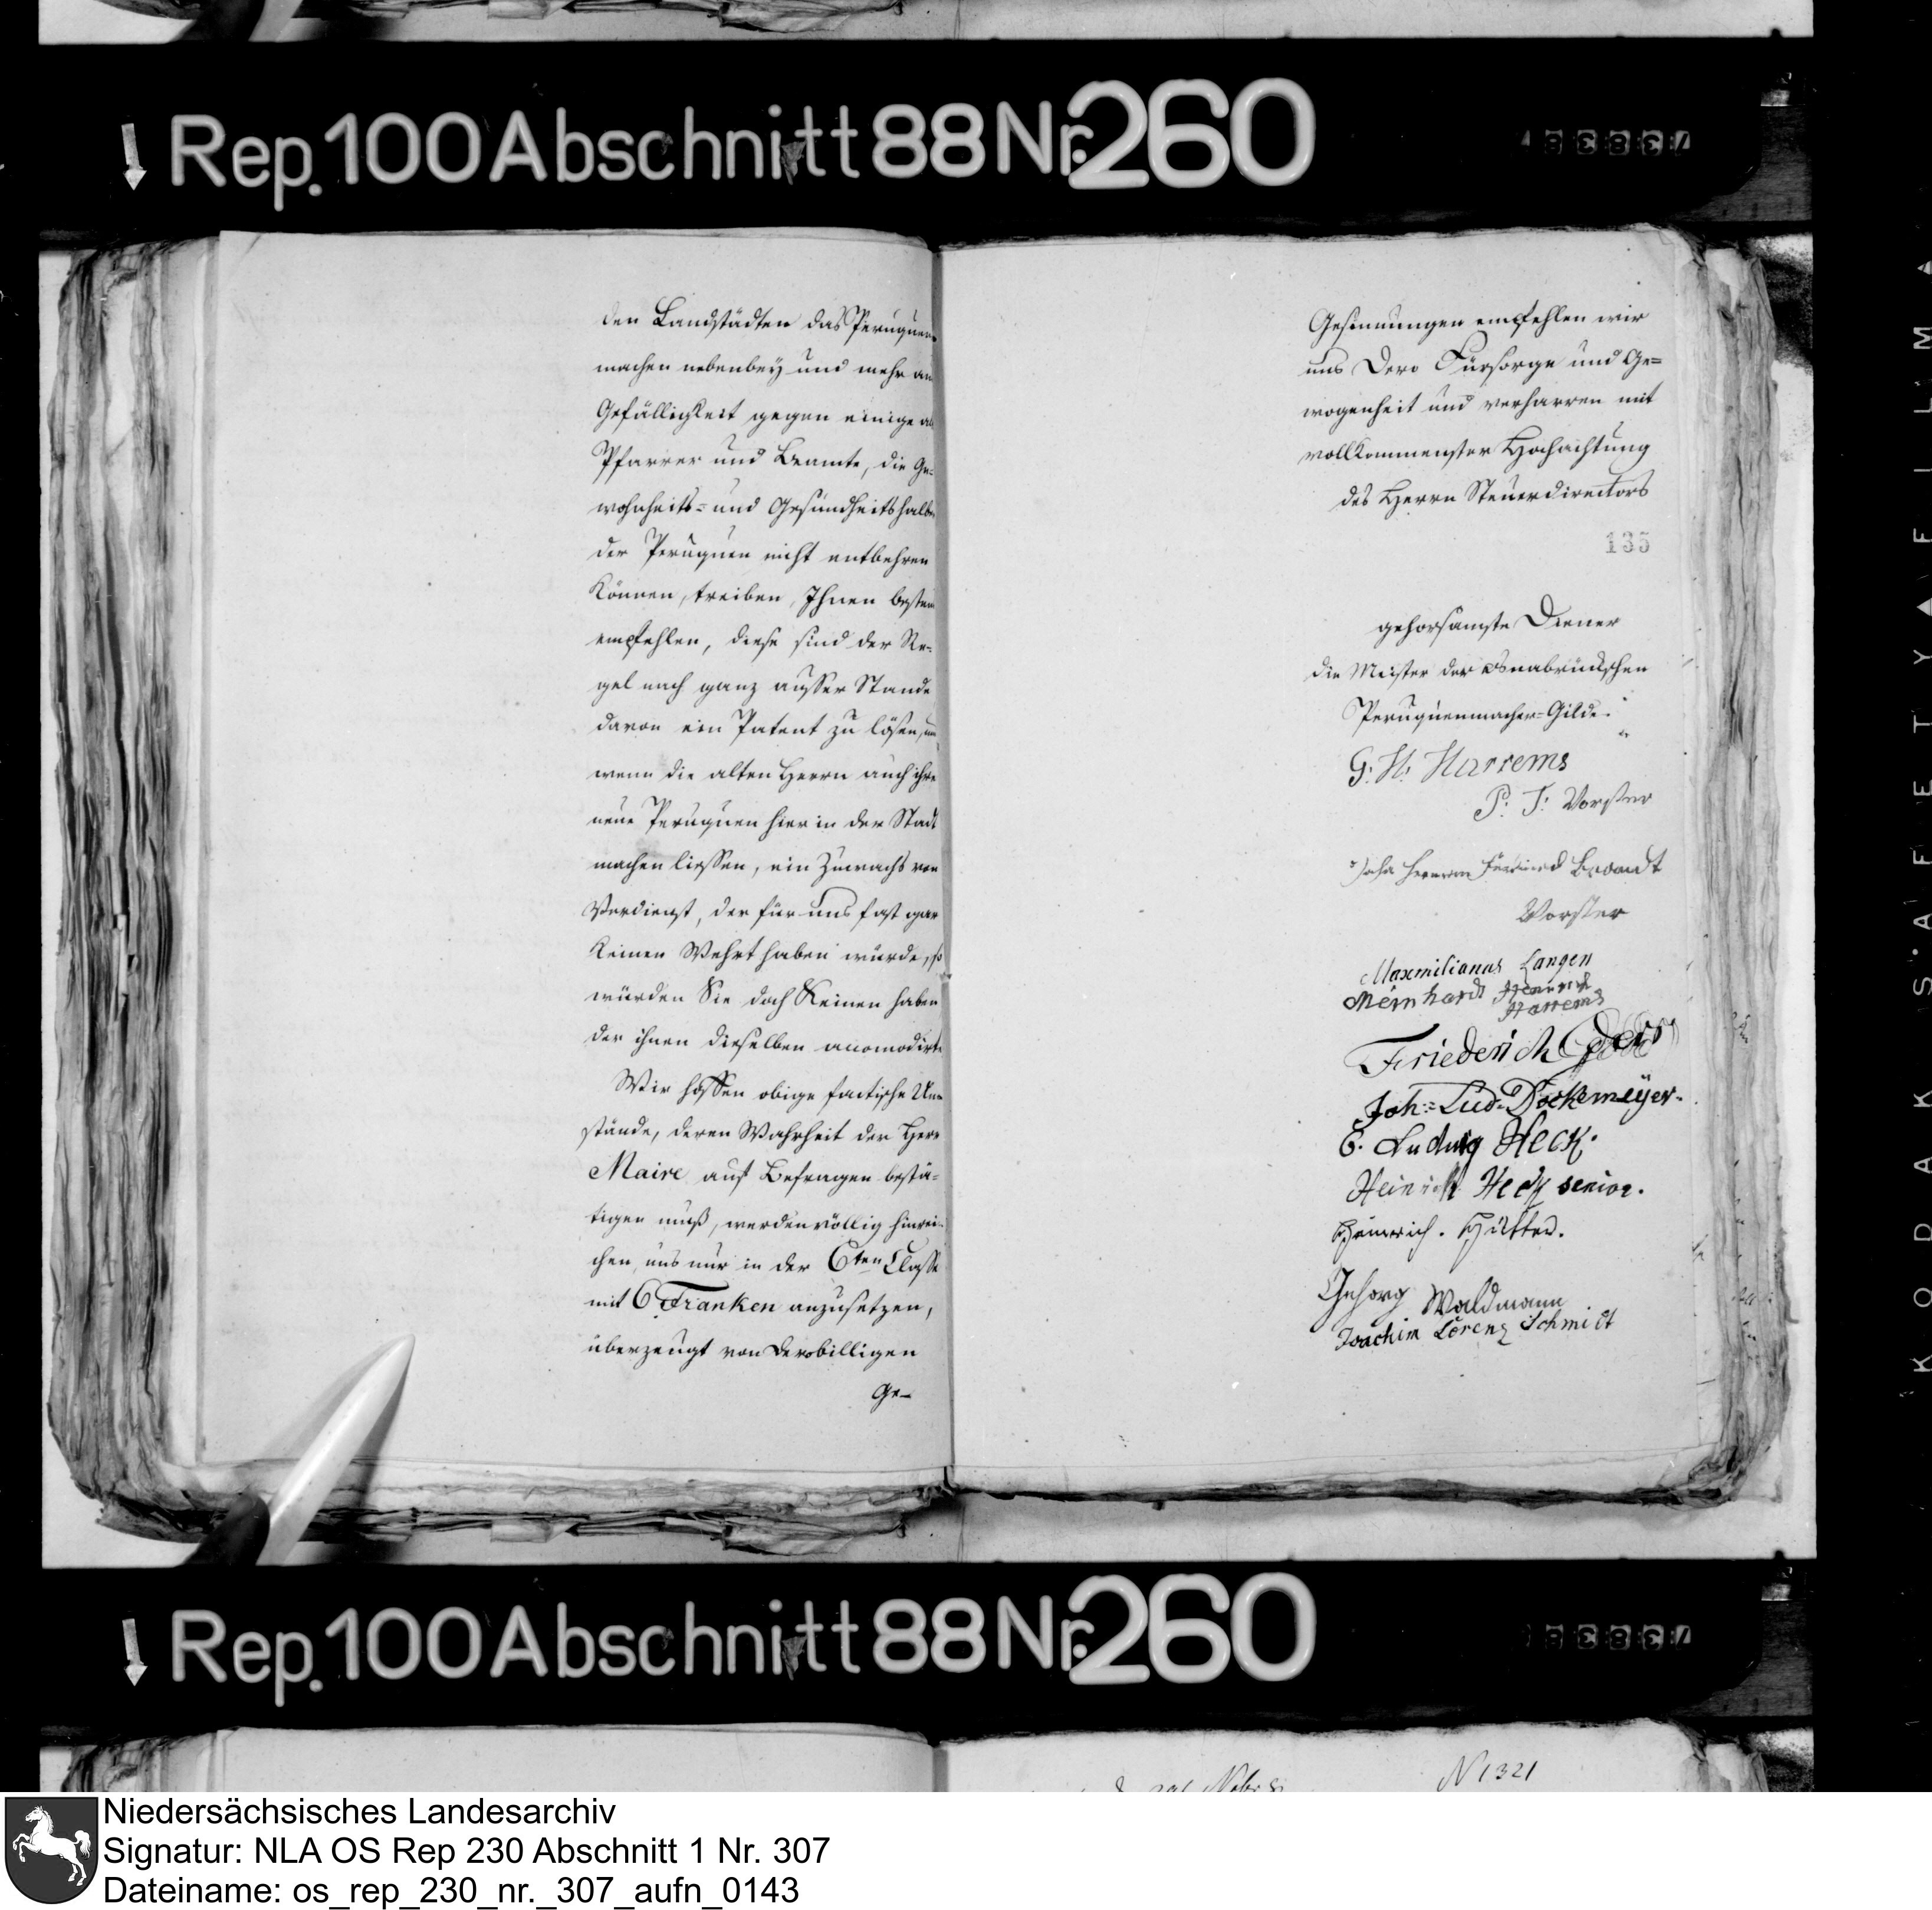 Rep. 100 Abschnitt 88 Nr. 260
den Landstädten das Peruquen-
machen nebenbey und mehr an
Gefälligkeit gegen einige al
Pfarrer und Beamte, die Ge-
wohnheits- und Gesundheitshalber
der Peruquen nicht entbehren
können, treiben, Ihnen bestens
empfehlen, diese sind der Re-
gel nach ganz ausser Stande
davon ein Patent zu lösen, und
wenn die alten Herrn auch ihre
neue Peruquen hier in der Stadt
machen liessen, ein Zuwachs von
Verdienst, der für uns fast gar
keinen Wehrt haben würde, so
würden Sie doch keinen haben
der ihnen dieselben accomodirte
Wir hoffen obige factische Um-
stände, deren Wahrheit der Herr
Maire auf Befragen bestä-
tigen muß, werden völlig hinrei-
chen uns nur in der 6ten Classe
mit 6 Franken anzusetzen,
überzeugt von dero billigen
Ge-
Gesinnungen empfehlen wir
uns Dero Fürsorge und Ge-
wogenheit und verharren mit
vollkommenster Hochachtung
des Herrn Steuerdirectors
135
gehorsamste Diener
die Meister der osnabrückschen
Peruquenmacher-Gilde.
G: H: Harrems
P: T: Vorster
Joh Herman Brandt
Vorster
Maxmilianus Langen
Meinhard Heinrich
Harrems
Friederich
Joh: Lud. Dockemeÿer.
C. Ludwig Heck.
Heinrich Heck senior.
Heinrich. Hülter.
Gehorg Waldmann
Joachim Lorenz Schmidt
Rep. 100 Abschnitt 88 Nr. 260
N 1321
KODAK SAFETY FILM
Niedersächsisches Landesarchiv
Signatur: NLA OS Rep 230 Abschnitt 1 Nr. 307
Dateiname: os_rep_230_nr._307_aufn_0143